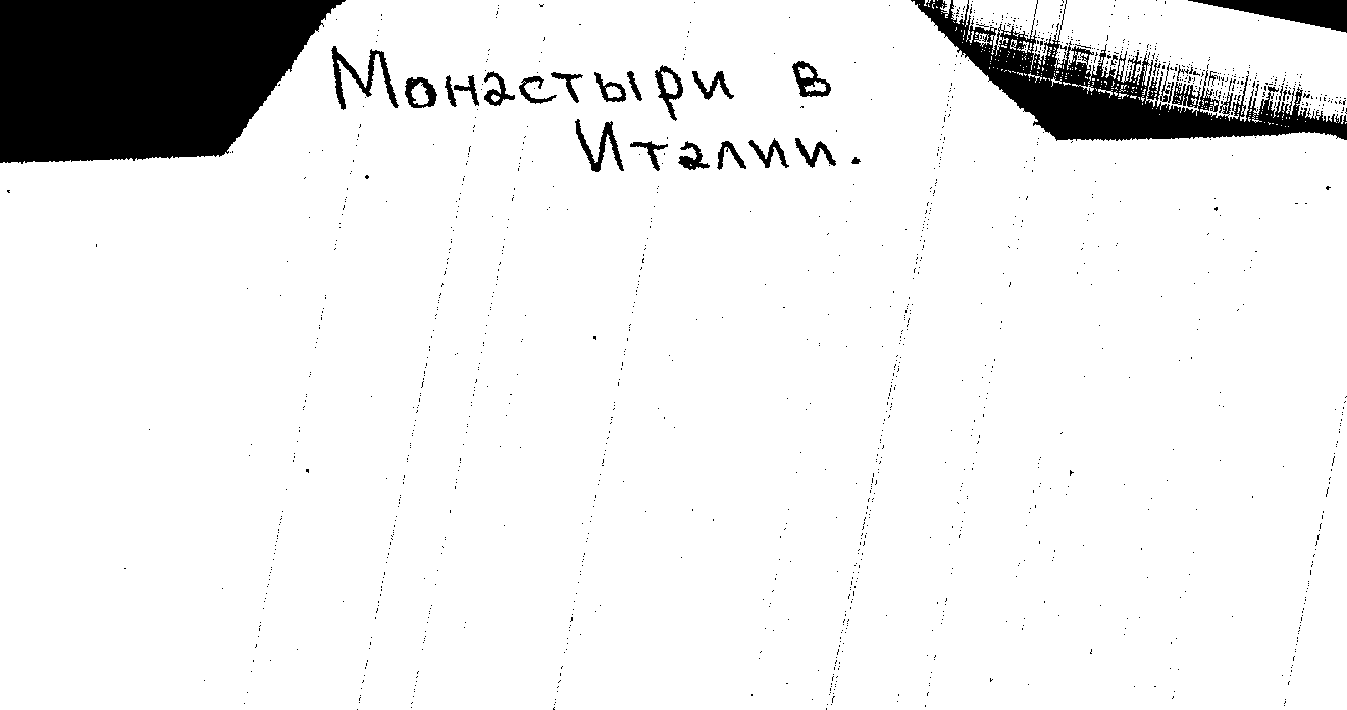 Монастыри в
Италии.